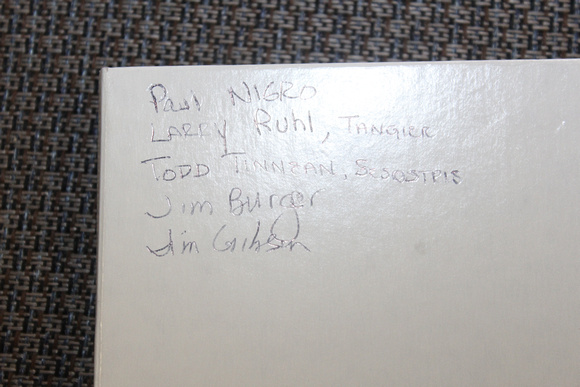 Paul NIGRO
LARRY Ruhl, TANGIER
TODD TINNEAN, SESOSTRIS
Jim Burger
Jim Gibson